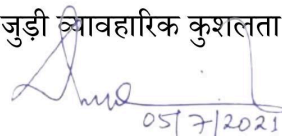 जुड़ी व्यावहारिक कुशलता
05/7/2021